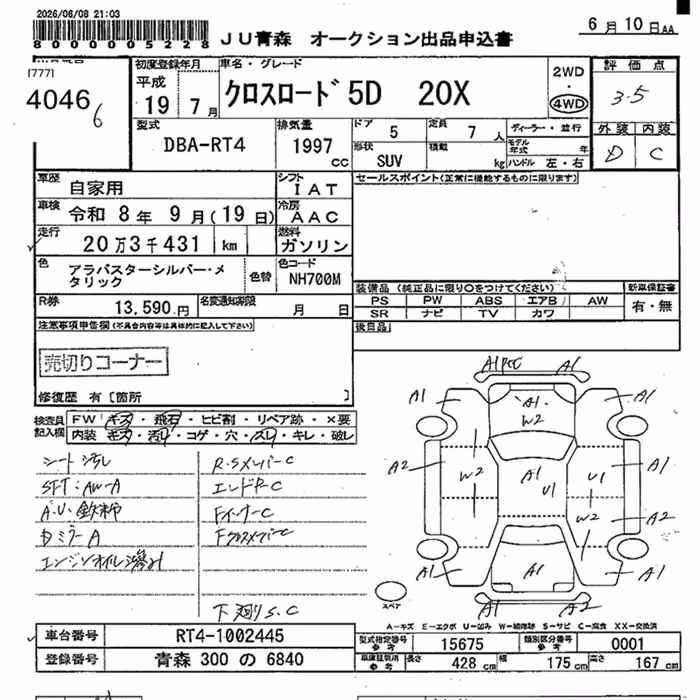 2026/06/08 21:03
8000005228
JU青森 オークション出品申込書
6月10日AA
[777]
4046
6
初度登録年月
平成
19 7月
車名・グレード
クロスロード 5D 20X
2WD
・
4WD
評価点
3.5
外装 内装
D C
型式
DBA-RT4
排気量
1997
cc
ドア 5
定員 7人
ディーラー・並行
モデル年式 年
形状 SUV
積載 kg
ハンドル 左・右
車歴
自家用
シフト
IAT
セールスポイント(正常に機能するものに限ります)
車検
令和 8年 9月(19日)
冷房
AAC
走行
20万3千431 km
燃料
ガソリン
色
アラバスターシルバー・メタリック
色替
色コード
NH700M
装備品 (純正品に限り〇をつけてください)
新車保証書
PS PW ABS エアB AW
有・無
SR ナビ TV カワ
R券
13,590円
名変通知期限
月 日
後日品
注意事項申告欄(不具合内容等は具体的に記入して下さい)
売切りコーナー
修復歴 有 [箇所 ]
検査員記入欄
FW キズ・飛石・ヒビ割・リペア跡・×要
内装 キズ・汚れ・コゲ・穴・スレ・キレ・破レ
シート汚れ
SFT:AW-A
A.U.鉄柿
DミラーA
R.SメンバーC
エンドPC
FインナーC
FクロスメンバーC
下廻りS.C
A1 A1 A1 A1
A1
W2
A2 W2 A1 U1 U1 A1
W2 A2
A1 A1 A1
A1 A2
スペア
A-キズ E-エクボ U-凹み W-補修跡 S-サビ C-腐食 XX-交換済
車台番号 RT4-1002445
登録番号 青森 300 の 6840
型式指定番号 参考 15675
類別区分番号 参考 0001
車庫証明用 参考 長さ 428 cm 幅 175 cm 高さ 167 cm